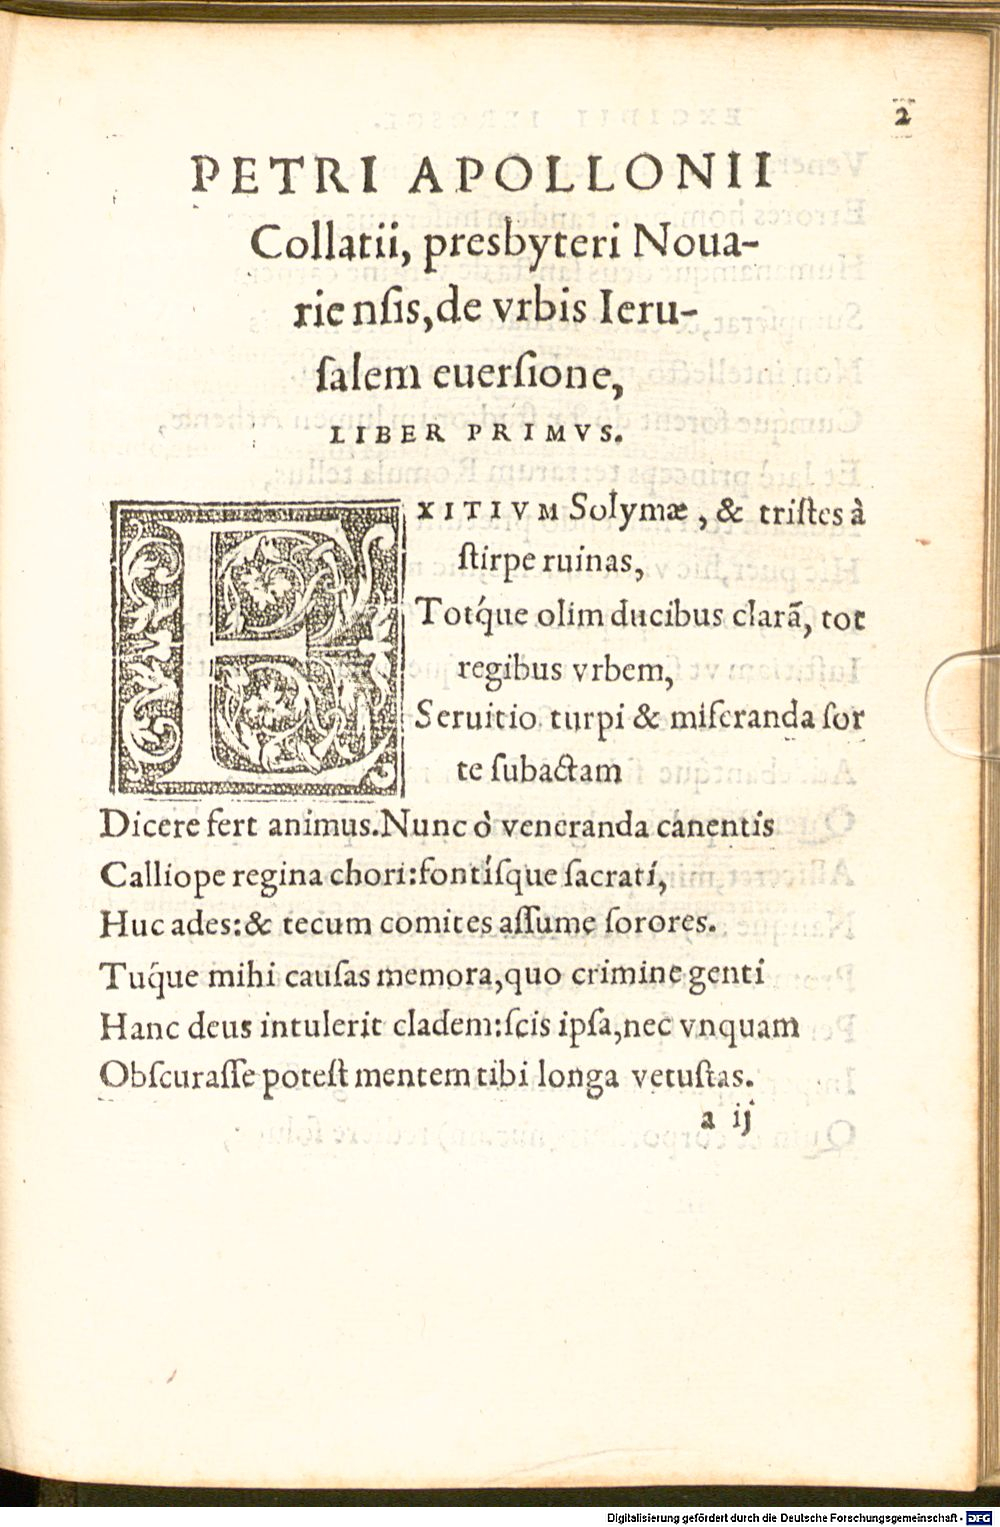 2
PETRI APOLLONII
Collatii, presbyteri Noua-
riensis, de vrbis Ieru-
salem euersione,
LIBER PRIMVS.
EXITIVM Solymæ, & tristes à
stirpe ruinas,
Totq́ue olim ducibus clarã, tot
regibus vrbem,
Seruitio turpi & miseranda sor
te subactam
Dicere fert animus. Nunc ò veneranda canentis
Calliope regina chori: fontísque sacrati,
Huc ades: & tecum comites assume sorores.
Tuq́ue mihi causas memora, quo crimine genti
Hanc deus intulerit cladem: scis ipsa, nec vnquam
Obscurasse potest mentem tibi longa vetustas.
a ij
Digitalisierung gefördert durch die Deutsche Forschungsgemeinschaft - DFG